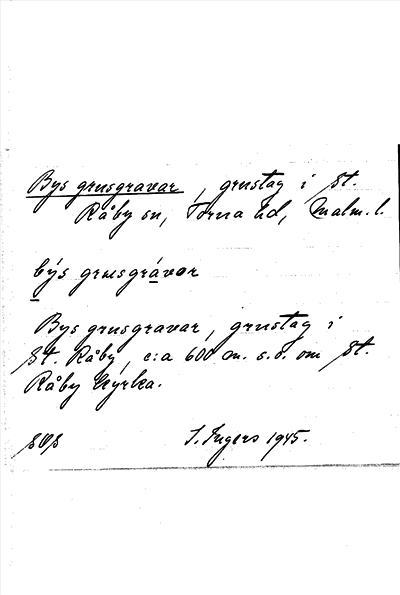 Bys grusgravar, grustag i St.
Råby sn, Torna hd, Malm. l.
býs grusgràvar
Bys grusgravar, grustag i
St. Råby, c:a 600 m. s.o. om St.
Råby kyrka.
I. Ingers 1945.